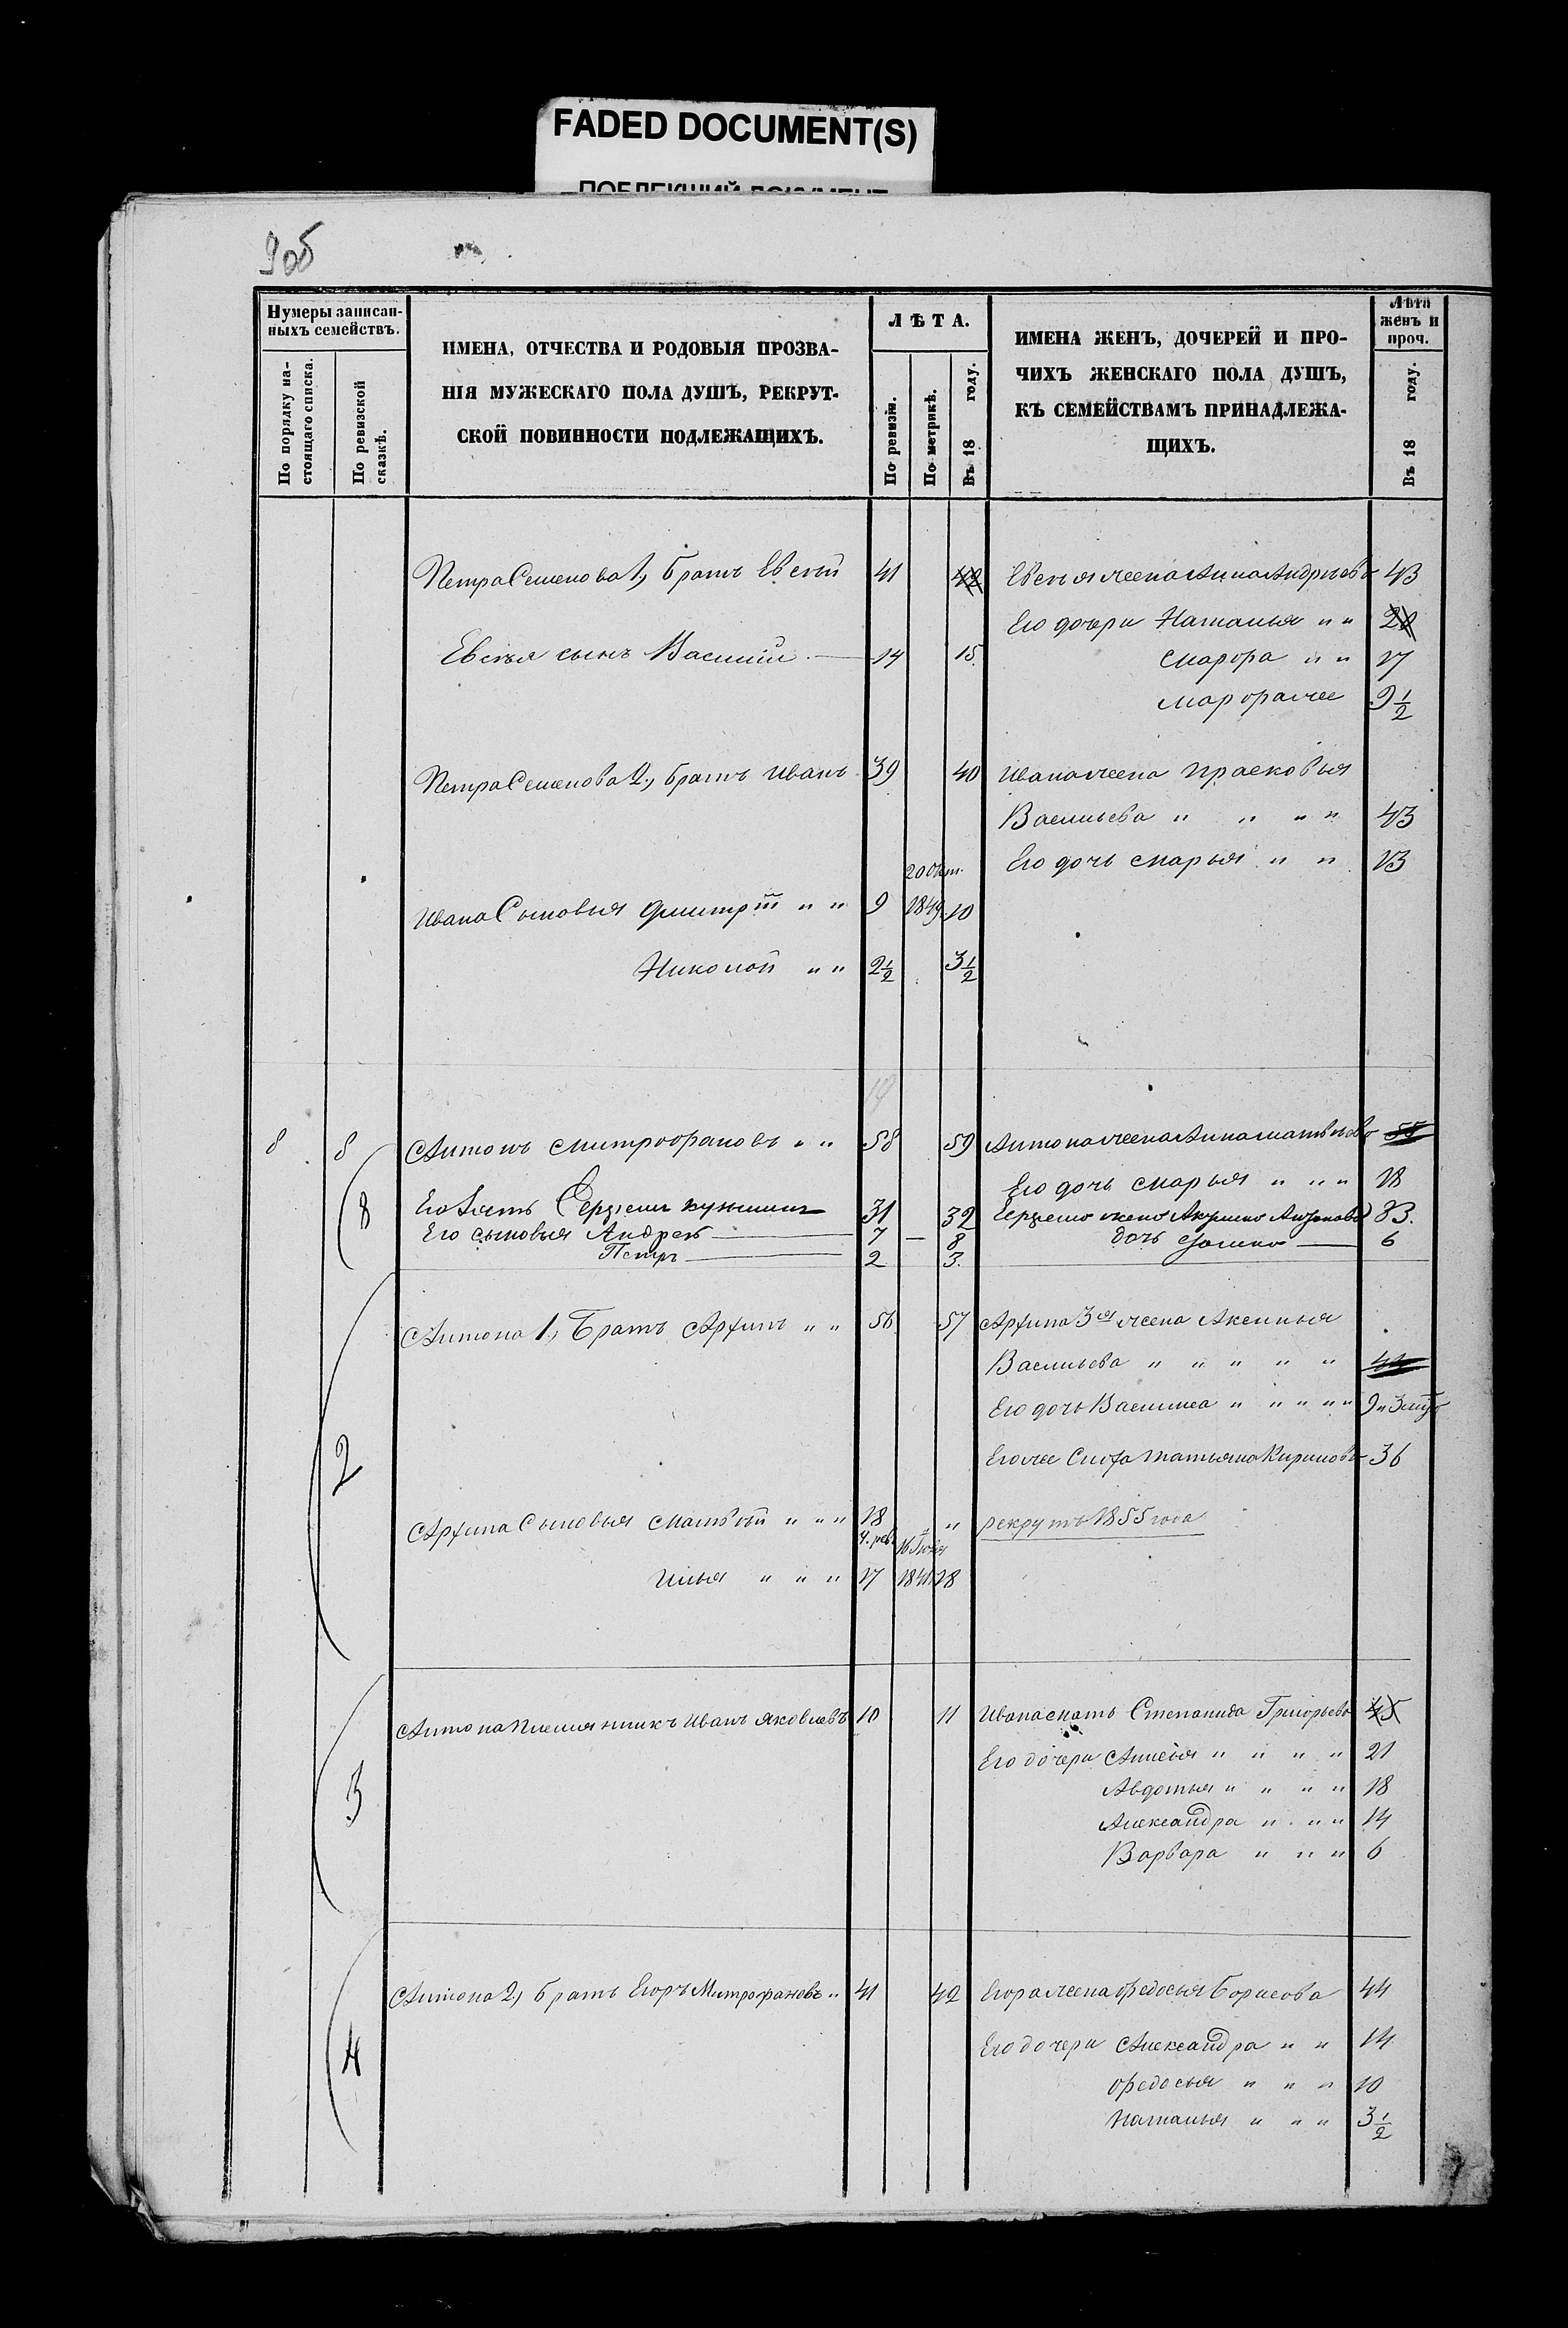 FADED DOCUMENT(S)
ПОБЛЕКШИЙ ДОКУМЕНТ
9об
Нумеры записан-
ныхъ семействъ.
По порядку на-
стоящаго списка.
По ревизской
сказкѣ.
ИМЕНА, ОТЧЕСТВА И РОДОВЫЯ ПРОЗВА-
НІЯ МУЖЕСКАГО ПОЛА ДУШЪ, РЕКРУТ-
СКОЙ ПОВИННОСТИ ПОДЛЕЖАЩИХЪ.
ЛѢТА.
По ревизіи.
По метрикѣ.
Въ 18 году.
ИМЕНА ЖЕНЪ, ДОЧЕРЕЙ И ПРО-
ЧИХЪ ЖЕНСКАГО ПОЛА ДУШЪ,
КЪ СЕМЕЙСТВАМЪ ПРИНАДЛЕЖА-
ЩИХЪ.
Лѣта
женъ и
проч.
Въ 18 году.
Петра Семенова 1, братъ Евсѣй 41 42 Евсѣя жена Анна Андрѣева 43
Его дочери Наталья " " 20
Евсѣя сынъ Василій 14 15 Марфа " " 17
Марфа же 9 1/2
Петра Семенова 2, братъ Иванъ 39 40 Ивана жена Прасковья
Васильева " " " " 43
Его дочь Марья " " 13
20 Окт.
Ивана Сыновья Дмитрій " " 9 1849 10
Николай " " 2 1/2 3 1/2
8 8 Антонъ Митрофановъ " " 58 59 Антона жена Анна Матвѣева 58
Его дочь Марья " " " 18
8 Его Зять Сергей Кузминъ 31 32 Сергея жена Акулина Антонова 33.
Его сыновья Андрей 7 8 дочь 6
Петръ 2 3.
Антона 1, Братъ Архипъ " " 56 57 Архипа 3я жена Аксинья
Васильева " " " " " 44
Его дочь Василиса " " " " " 9
2 Его же Сноха Татьяна Кирилова 36
Архипа Сыновья Матвѣй " " " 18 " рекрутъ 1855 года
16 Іюля
Илья " " " 17 1841 18
3 Антона племянникъ Иванъ Яковлевъ 10 11 Ивана мать Степанида Григорьева 45
Его дочери Анисья " " " " 21
Авдотья " " " " 18
Александра " " " 14
Варвара " " " 6
4 Антона 2, братъ Егоръ Митрофановъ " 41 42 Егора жена Федосья Борисова 44
Его дочери Александра " " 14
Федосья " " " 10
Наталья " " " 3 1/2